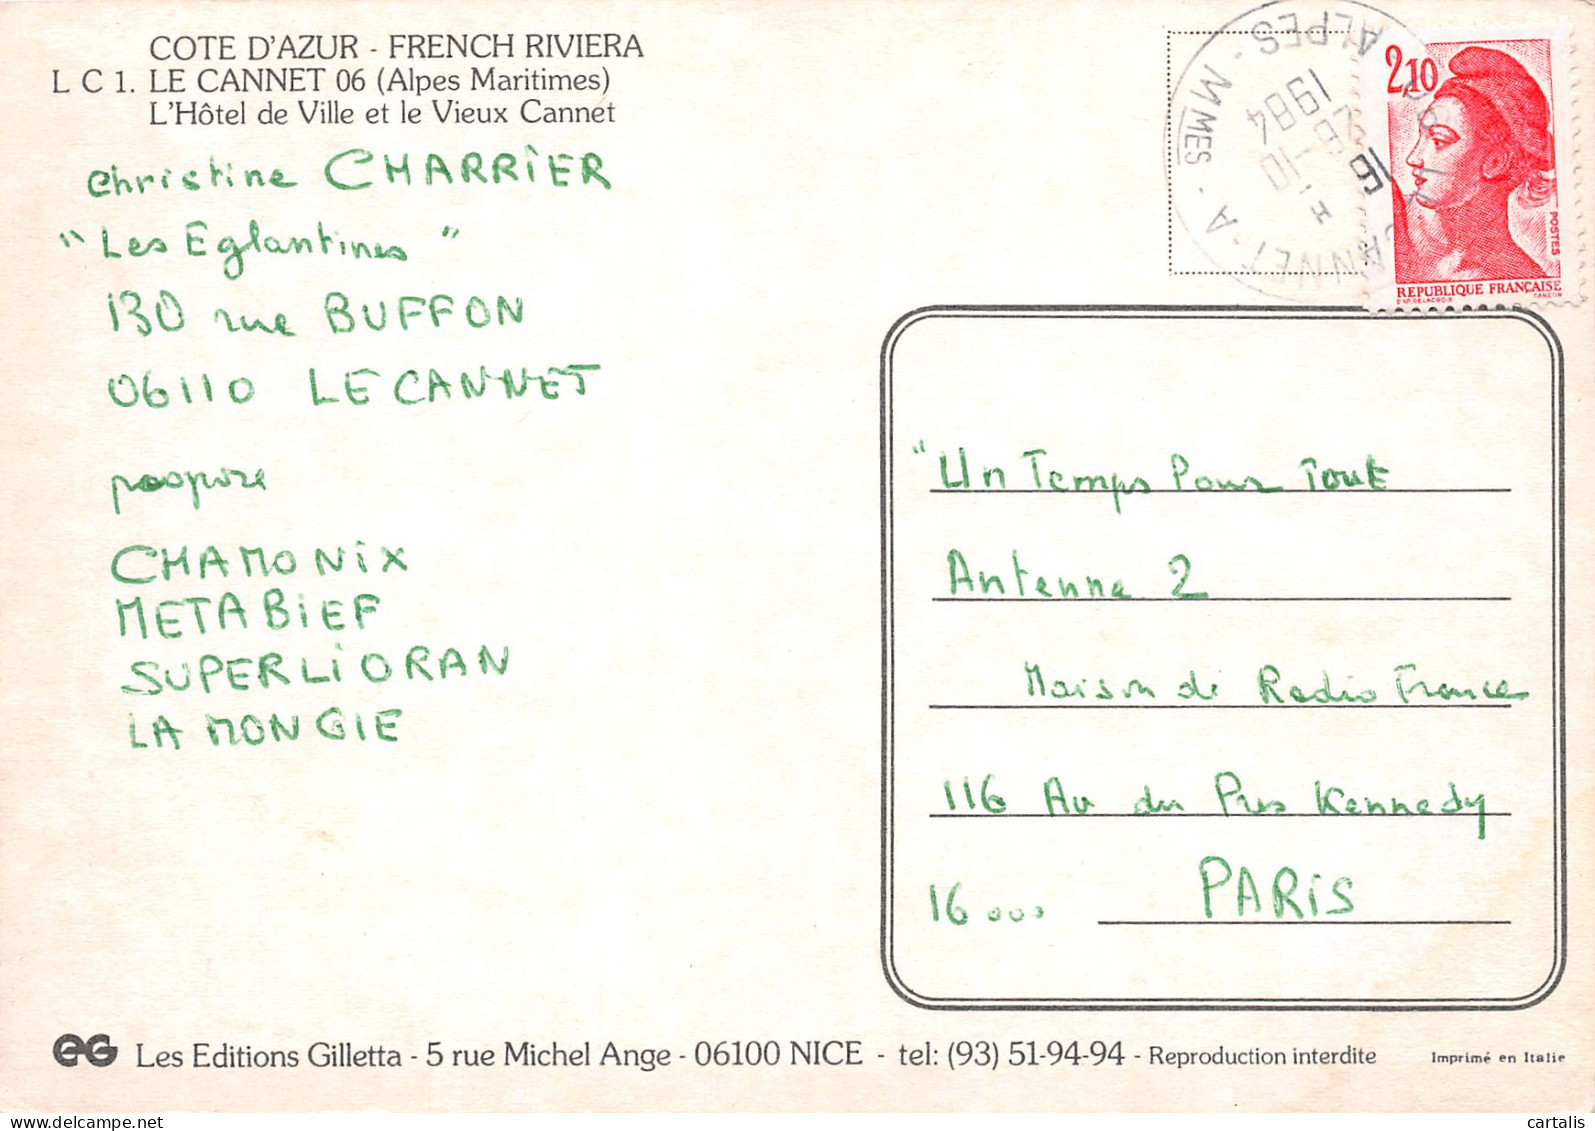 COTE D'AZUR - FRENCH RIVIERA
L C 1. LE CANNET 06 (Alpes Maritimes)
L'Hôtel de Ville et le Vieux Cannet
Christine CHARRIER
"Les Eglantines"
130 rue BUFFON
06110 LE CANNET
CHAMONIX
METABIEF
SUPERLIORAN
LA MONGIE
ALPES - MMES
1984
2,10
POSTES
REPUBLIQUE FRANÇAISE
D'AP. DELACROIX GANDON
"Un Temps Pour Tout
Antenne 2
Maison de Radio France
116 Av du Pres Kennedy
16 000 PARIS
EG Les Editions Gilletta - 5 rue Michel Ange - 06100 NICE - tel: (93) 51-94-94 - Reproduction interdite
Imprimé en Italie
cartalis